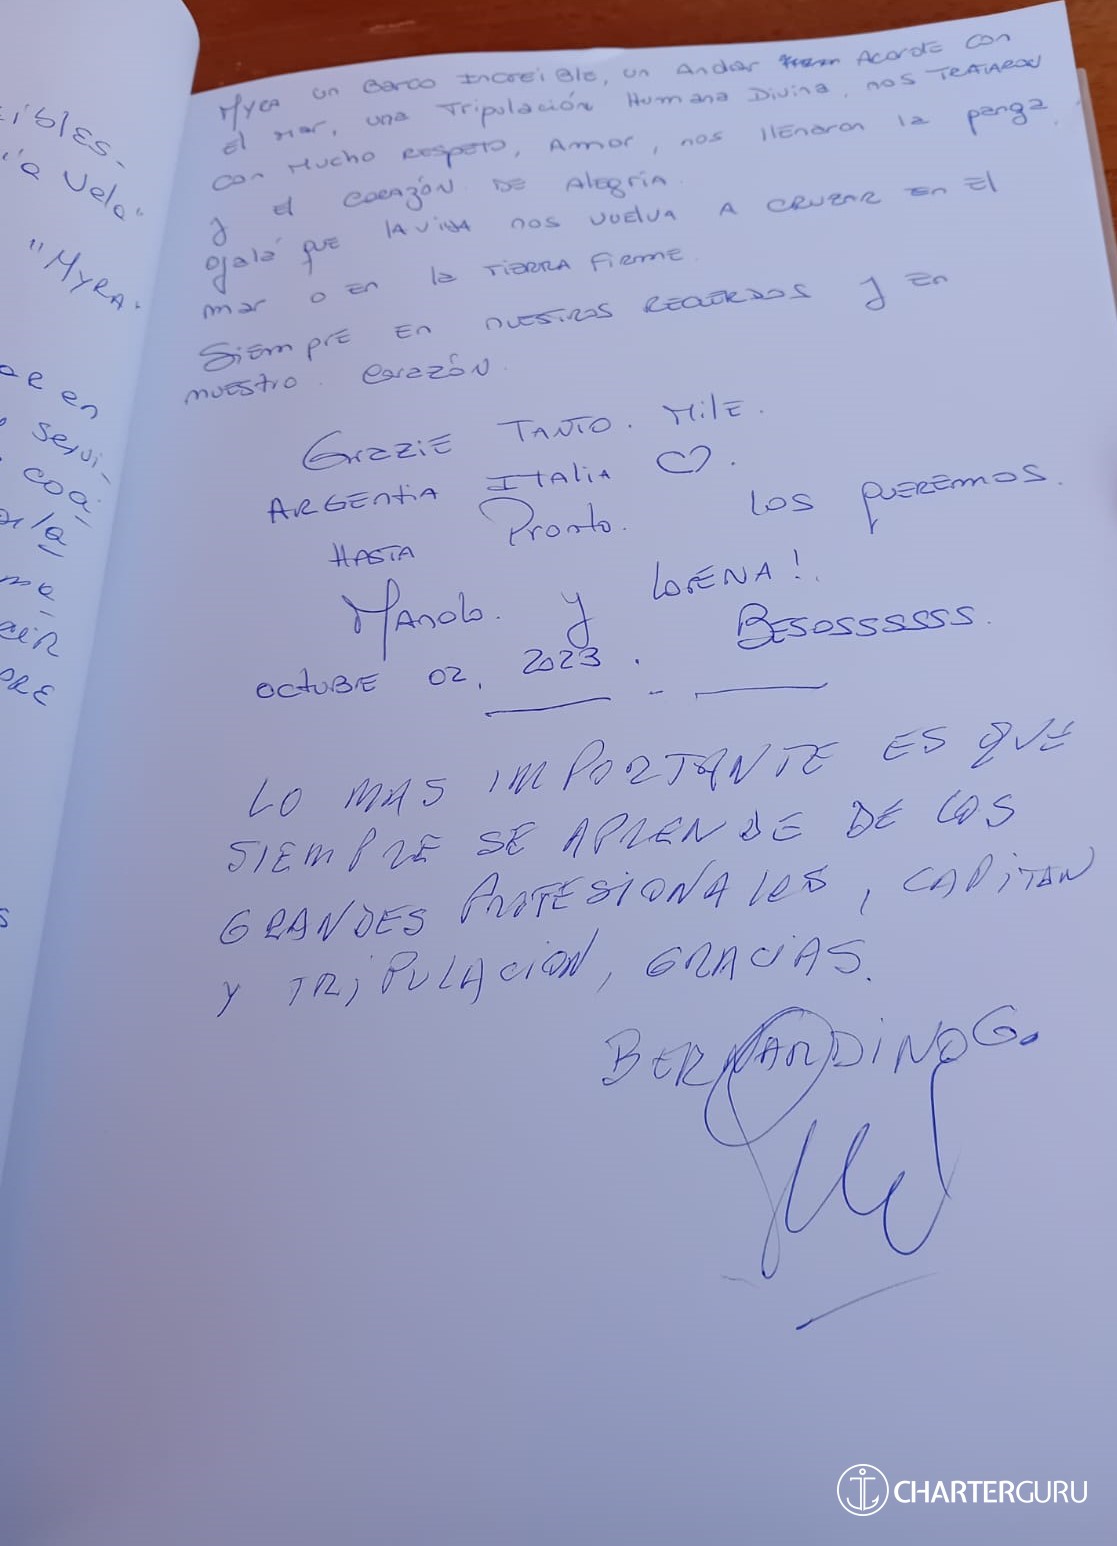 ibles.
"a vela"
"MYRA.
en
servi-
coa-
MYRA un Barco Increible, un Andar Acorde con
el mar, una Tripulación Humana Divina, nos TRATARON
con Mucho RESPETO, Amor, nos llenaron la panza
y el CORAZÓN DE Alegría.
Ojalá que LA VIDA nos VUELVA A CRUZAR en El
mar o en la TIERRA FIRME.
Siempre En nuestros RECUERDOS y En
nuestro Corazón.
Grazzie TANTO. Mile.
ARGENtiA ITALIA ♡.
HASTA Pronto. los QUEREMOS.
Manolo. y LORENA!.
BESOSSSSSS.
OCTUBE 02, 2023.
LO MAS IMPORTANTE ES QUE
SIEMPRE SE APRENDE DE LOS
GRANDES PROFESIONALES, CAPITAN
Y TRIPULACION, GRACIAS.
BERNARDINO G.
CHARTERGURU